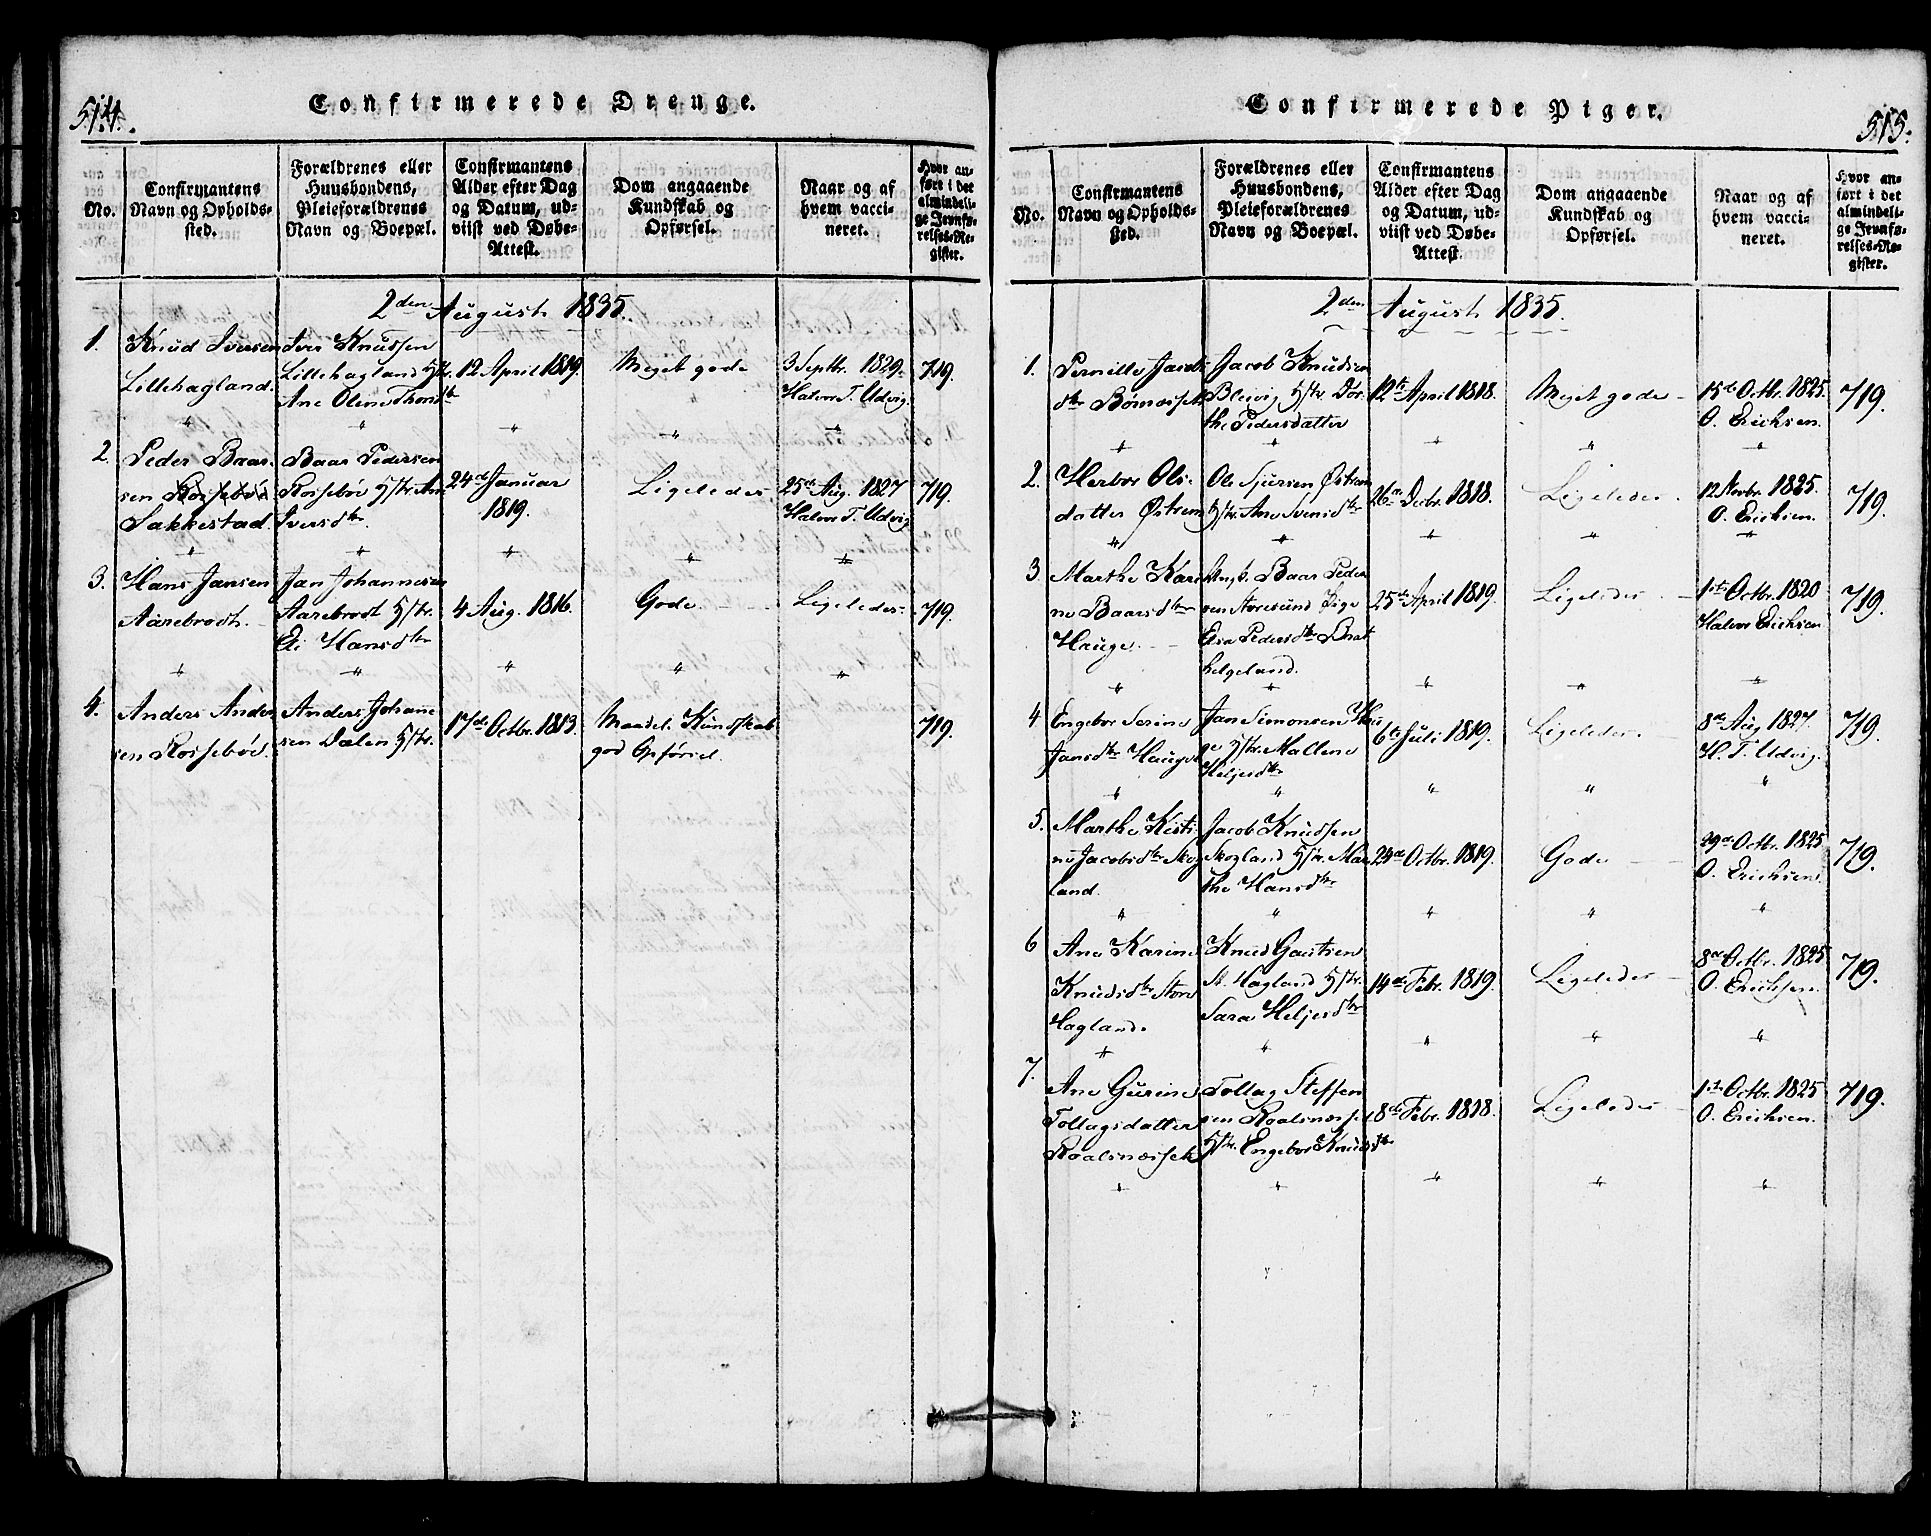 514.
Confirmerede Drenge.
No.
Confirmantens Navn og Opholdssted.
Forældrenes eller Huusbondens, Pleieforældrenes Navn og Boepæl.
Confirmantens Alder efter Dag og Datum, udviist ved Døbe-Attest.
Dom angaaende Kundskab og Opførsel.
Naar og af hvem vaccineret.
Hvor anført i det almindelige Jevnførelses-Register.
2den August 1835.
1.
Knud Iversen
Lillehagland.
Iver Knudsen
Lillehagland Hstr.
Ane Olene Thorsdtr
12 April 1819.
Meget gode
3 Septbr. 1829.
Halvor T. Udvig.
719.
2.
Peder Baar-
sen Rossebøe
Sakkestad.
Baar Pedersen
Rossebøe Hstr. Ane
Iversdtr.
24de Januar
1819.
Ligeledes
25de Aug. 1827
Halvor T. Udvig
719.
3.
Hans Jansen
Aarebrodt.
Jan Johannesen
Aarebrodt Hstr.
Eli Hansdtr
4 Aug. 1816.
Gode.
Ligeledes
719.
4.
Anders Ander
sen Rossebøe
Anders Johane
sen Dalen Hstr.
17de Octbr. 1813.
Maadel. Kundskab
god Opførsel.
719.
515.
Confirmerede Piger.
No.
Confirmantens Navn og Opholdssted.
Forældrenes eller Huusbondens, Pleieforældrenes Navn og Boepæl.
Confirmantens Alder efter Dag og Datum, udviist ved Døbe-Attest.
Dom angaaende Kundskab og Opførsel.
Naar og af hvem vaccineret.
Hvor anført i det almindelige Jevnførelses-Register.
2den August 1835.
1.
Pernille Jacobs
dtr Bømæsset
Jacob Knudsen
Bleivig Hstr. Dor
the Pedersdatter
12te April 1818.
Meget gode
15de Octbr. 1825.
O. Erichsen.
719.
2.
Herbor Ols-
datter Østrem
Ole Sjursen Østrem
Hstr. Ane Svensdtr
26de Decbr. 1818.
Ligeledes
12 Novbr. 1825.
O. Erichsen.
719.
3
Marthe Kari
ne Baarsdtr
Hauge.
Ungk. Baar Peder
sen Storesund Pige
Elsa Pedersdtr Brat
helgeland.
25de April 1819.
Ligeledes
1ste Octbr. 1820
Halvor Erichsen
719.
4
Engebor Serine
Jansdtr Hauge
Jan Simonsen Hau
ge Hstr. Mallene
Heljesdtr
6te Juli 1819.
Ligeledes
8de Aug 1827.
H. T. Udvig.
719.
5.
Marthe Kisti
ne Jacobsdtr Skog
land.
Jacob Knudsen
Skogland Hstr. Mar
the Hansdtr
24de Octbr. 1819.
Gode
29de Octbr. 1825
O. Erichsen.
719.
6
Ane Karine
Knudsdtr Store
Hagland.
Knud Gautsen
St. Hagland Hstr.
Sara Heljesdtr
14de Febr. 1819.
Ligeledes
8de Octbr. 1825
O. Erichsen.
719.
7.
Ane Gurine
Tollagsdatter
Roalsnæsset
Tollag Steffen
sen Roalsnæsset
Hstr. Engebor Knudsdtr
8de Febr. 1818.
Ligeledes
1ste Octbr. 1825
O. Erichsen.
719.